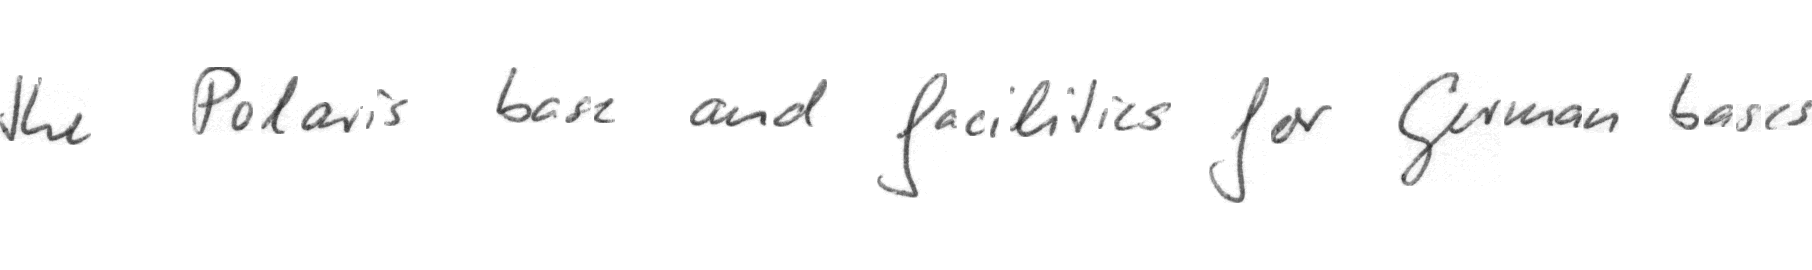 the Polaris base and facilities for German bases